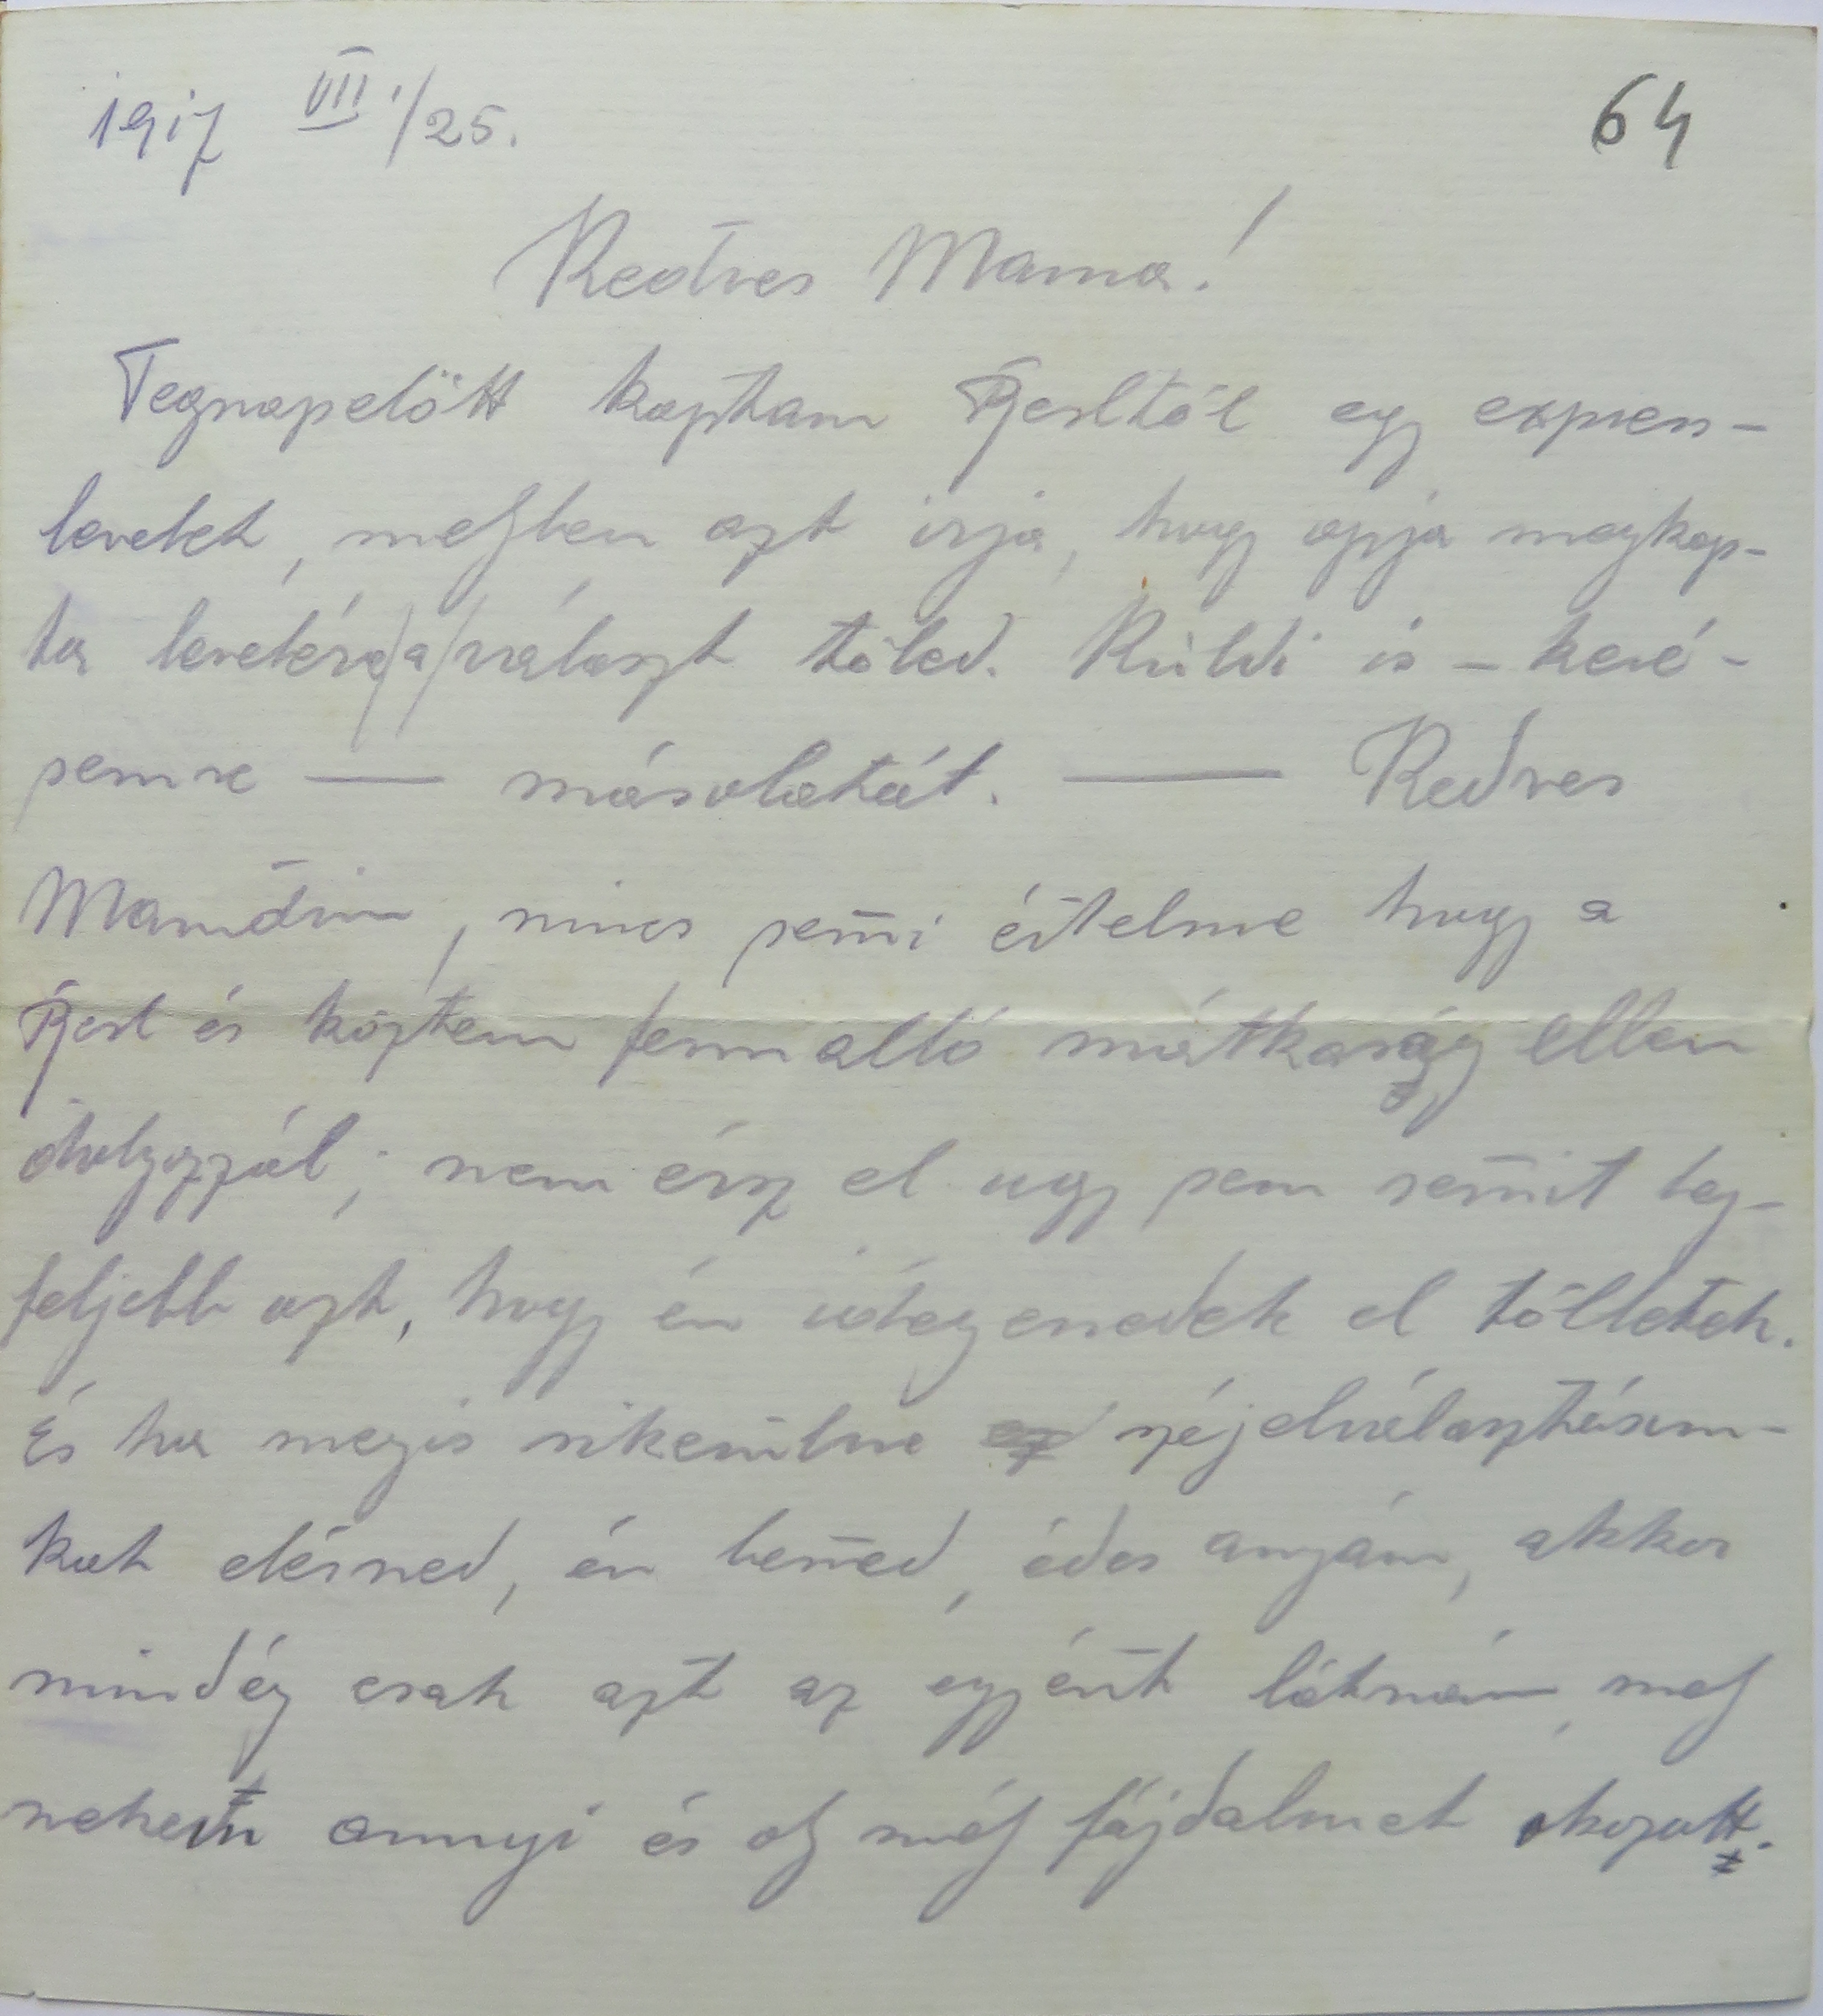 1917 VII./25.
64
Kedves Mama!
Tegnapelőtt kaptam egy expres-
levelet, melyben azt irja, hogy apja megkap-
ta levelére/a/választ tőled. Küldi is – kéré-
semre — másolatát. — Kedves
Mamám, nincs sem̄i értelme hogy a
és köztem fennálló mátkaság ellen
dolgozzál; nem érsz el ugy sem sem̄it leg-
feljebb azt, hogy én idegenedek el tőlletek.
És ha mégis sikerülne széjelválasztásun-
kat elérned, én ben̄ed, édes anyám, akkor
mindég csak azt az egyént látnám, mely
nekem annyi és oly mély fájdalmat okozott.